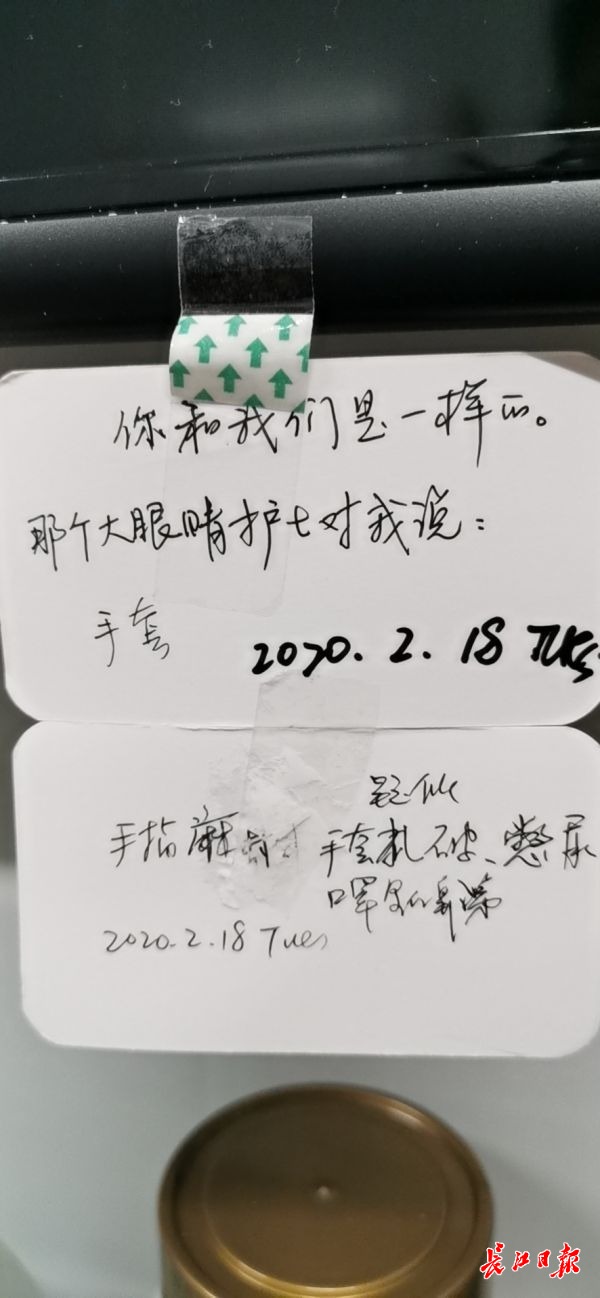 你和我们是一样的。
那个大眼睛护士对我说：
手套
2020. 2. 18 Tues
疑似
手指麻 手套扎破、憋尿
口罩 鼻梁
2020.2.18 Tues
长江日报